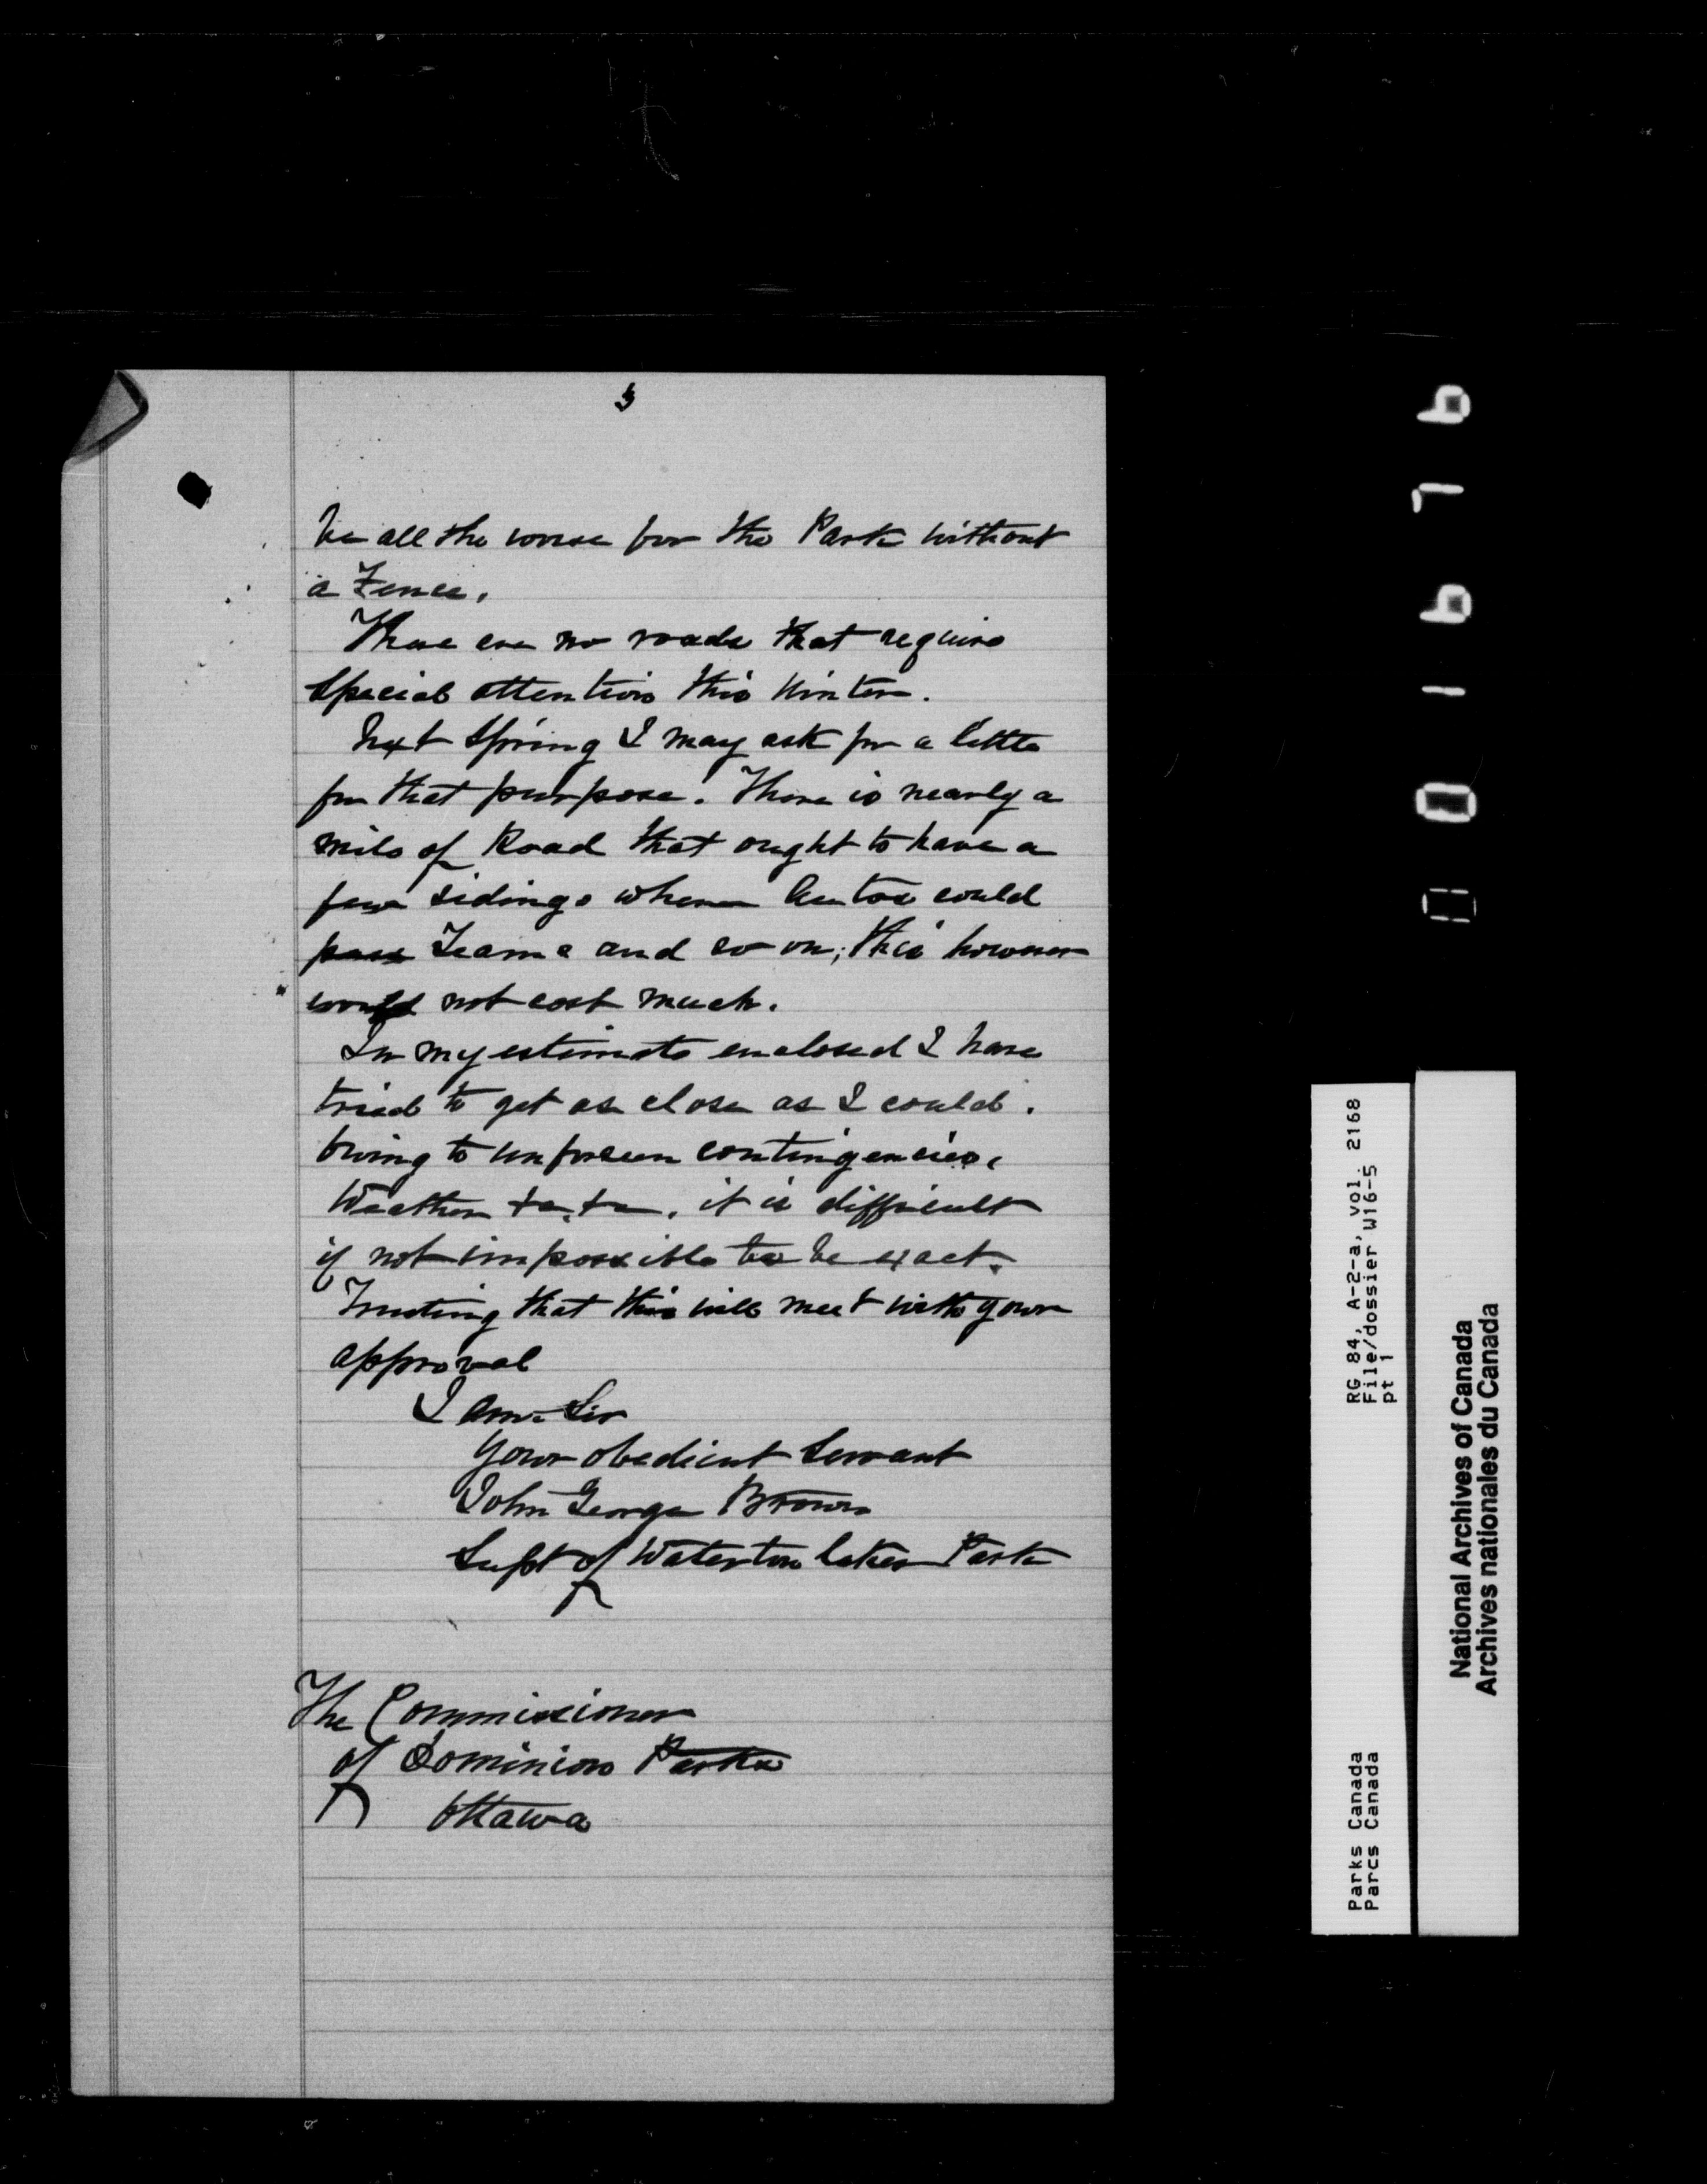 3
be all the worse for the Park without
a Fence.
There are no roads that require
special attention this Winter.
Next Spring I may ask for a little
for that purpose. There is nearly a
mile of Road that ought to have a
few sidings where Autos could
pass Teams and so on; this however
would not cost much.
In my estimate enclosed I have
tried to get as close as I could.
Owing to unforseen contingencies,
Weather &c, &c, it is difficult
if not impossible to be exact.
Trusting that this will meet with your
approval
I am Sir
your obedient Servant
John George Brown
Supt of Waterton Lakes Park
The Commissioner
of Dominion Parks
Ottawa
RG 84, A-2-a, vol. 2168
File/dossier W16-5
pt 1
Parks Canada
Parcs Canada
National Archives of Canada
Archives nationales du Canada